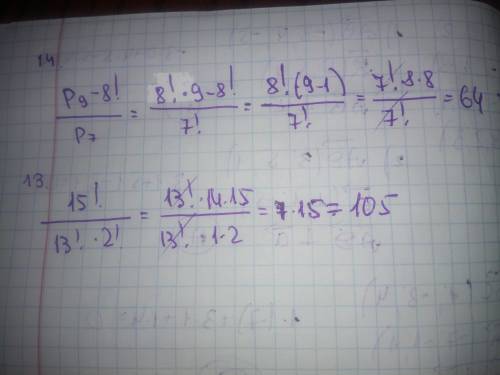 14.
P₉-8!/P₇ = 8!·9-8!/7! = 8!(9-1)/7! = 7!·8·8/7! = 64
13.
15!/13!·2! = 13!·14·15/13!·1·2 = 7·15 = 105